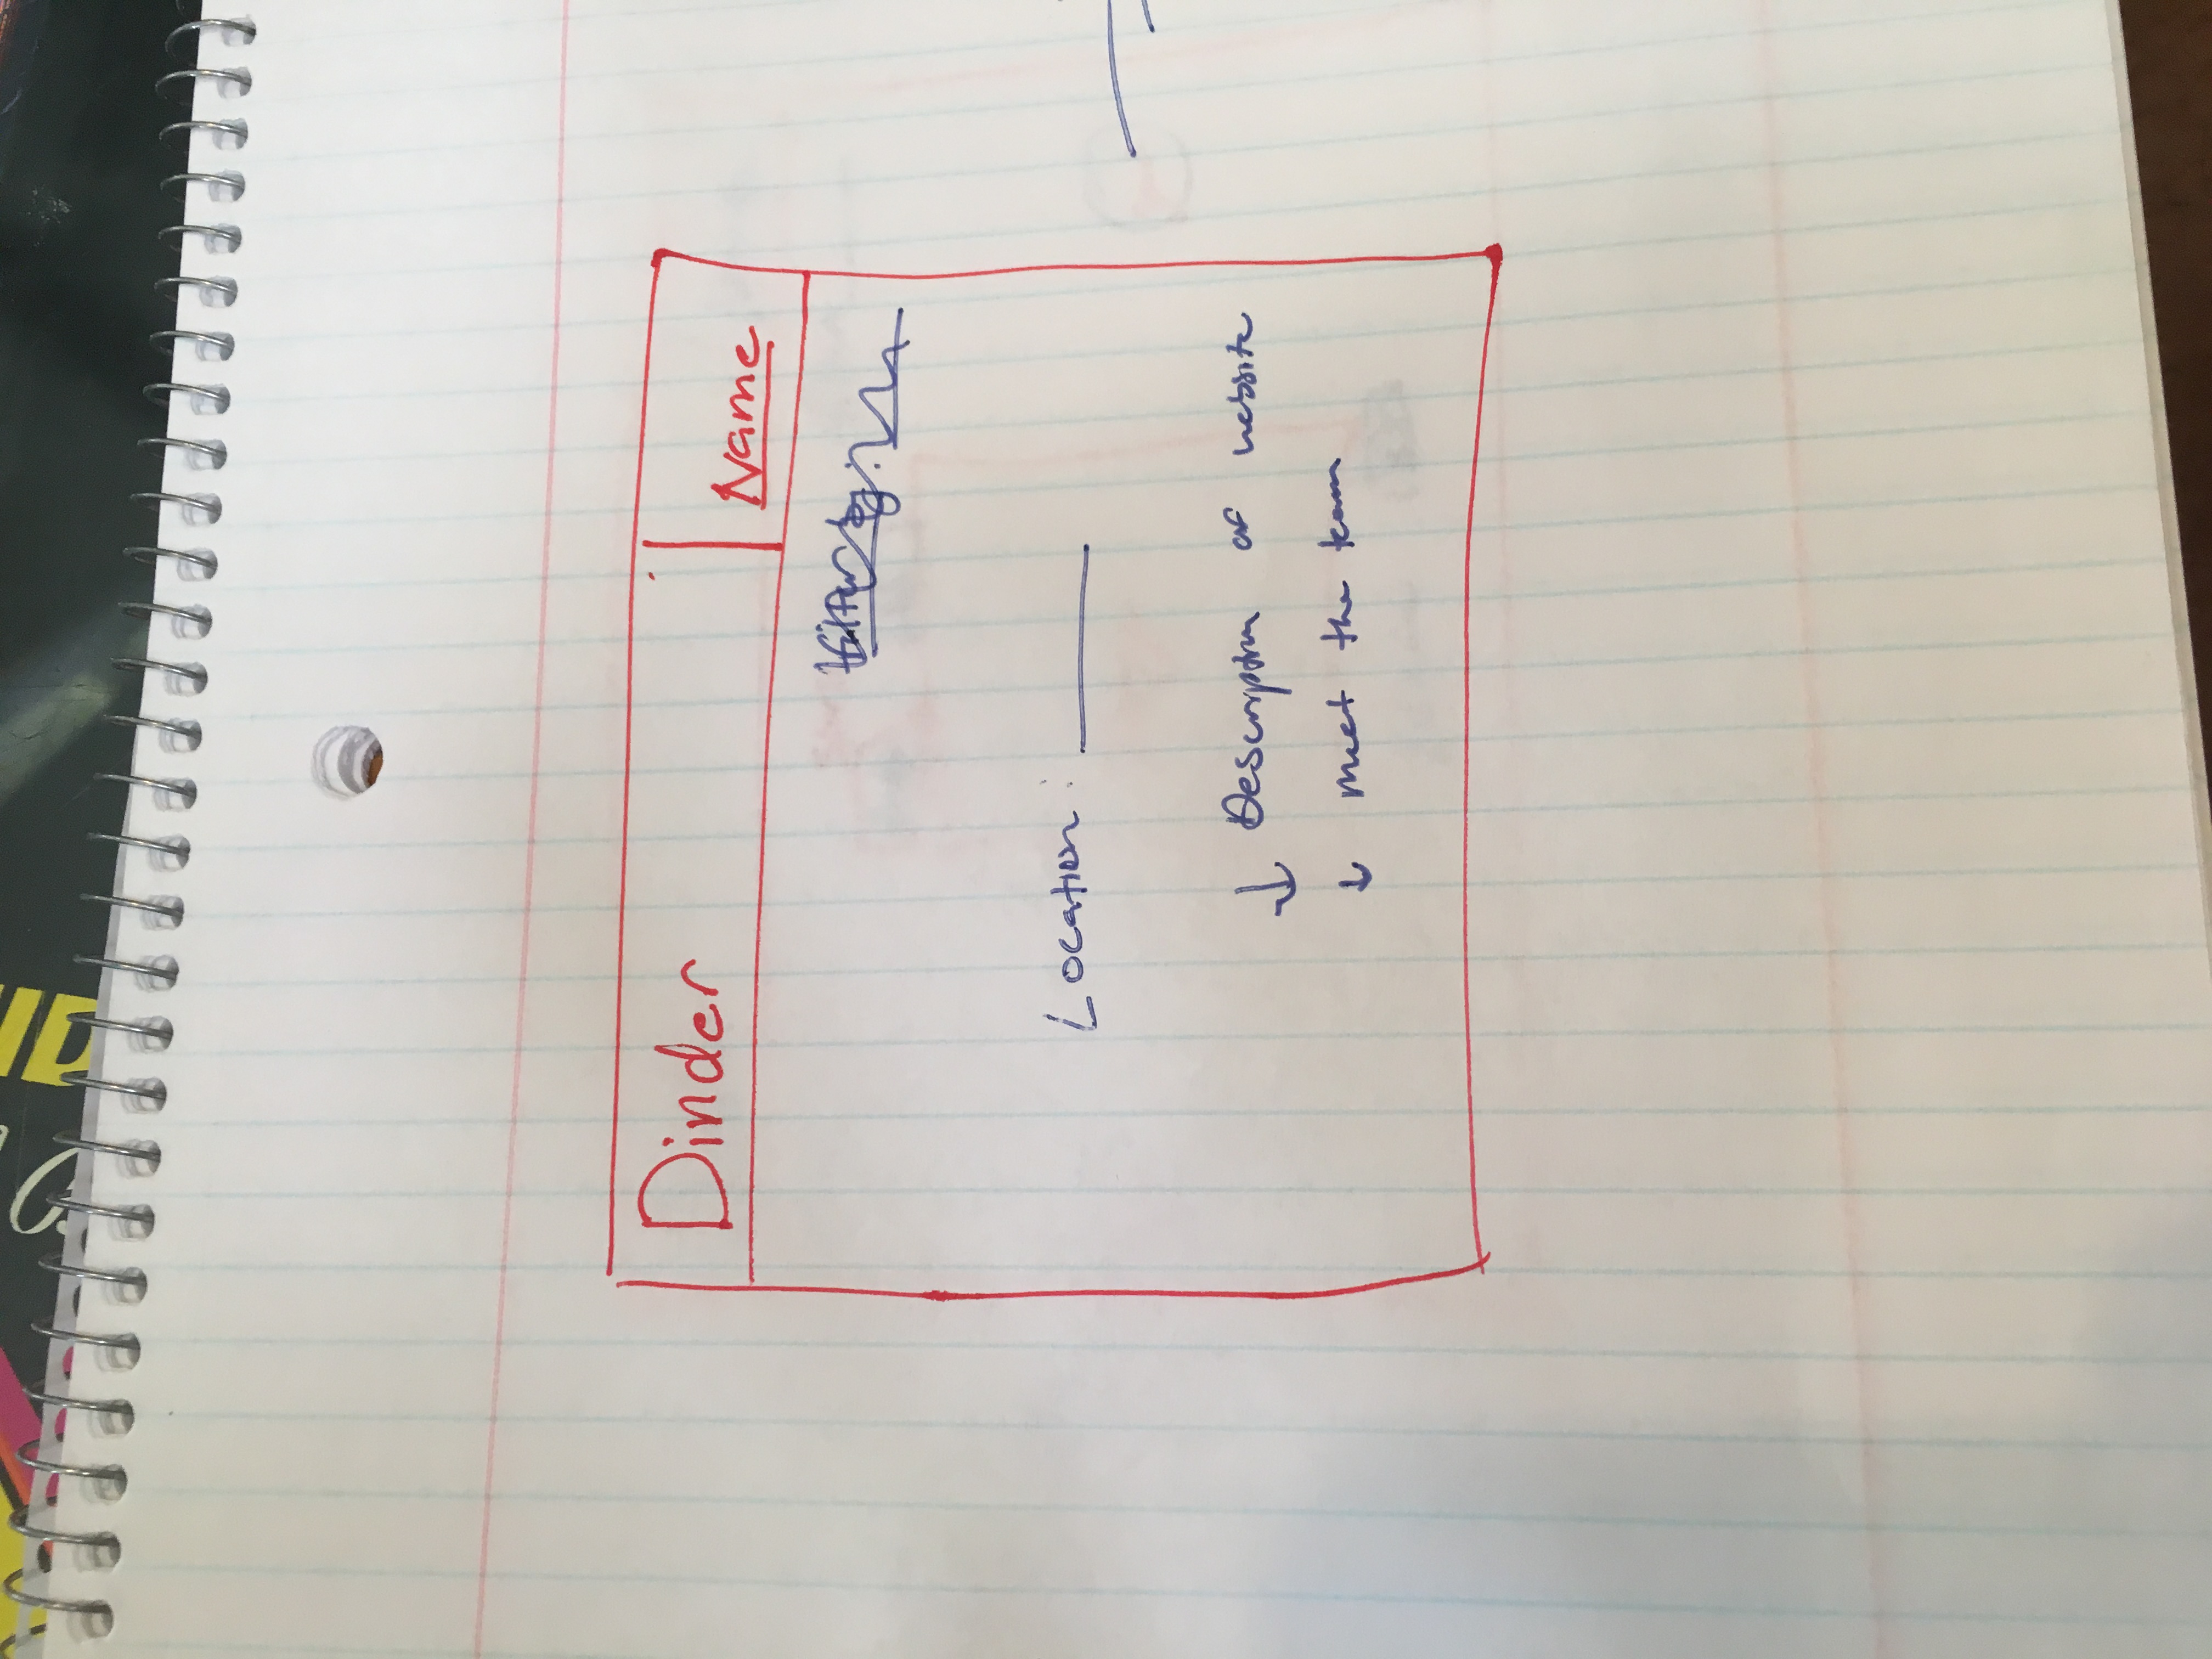 Dinder
Name
filter by:
Location:
↓ Description of website
↓ meet the team